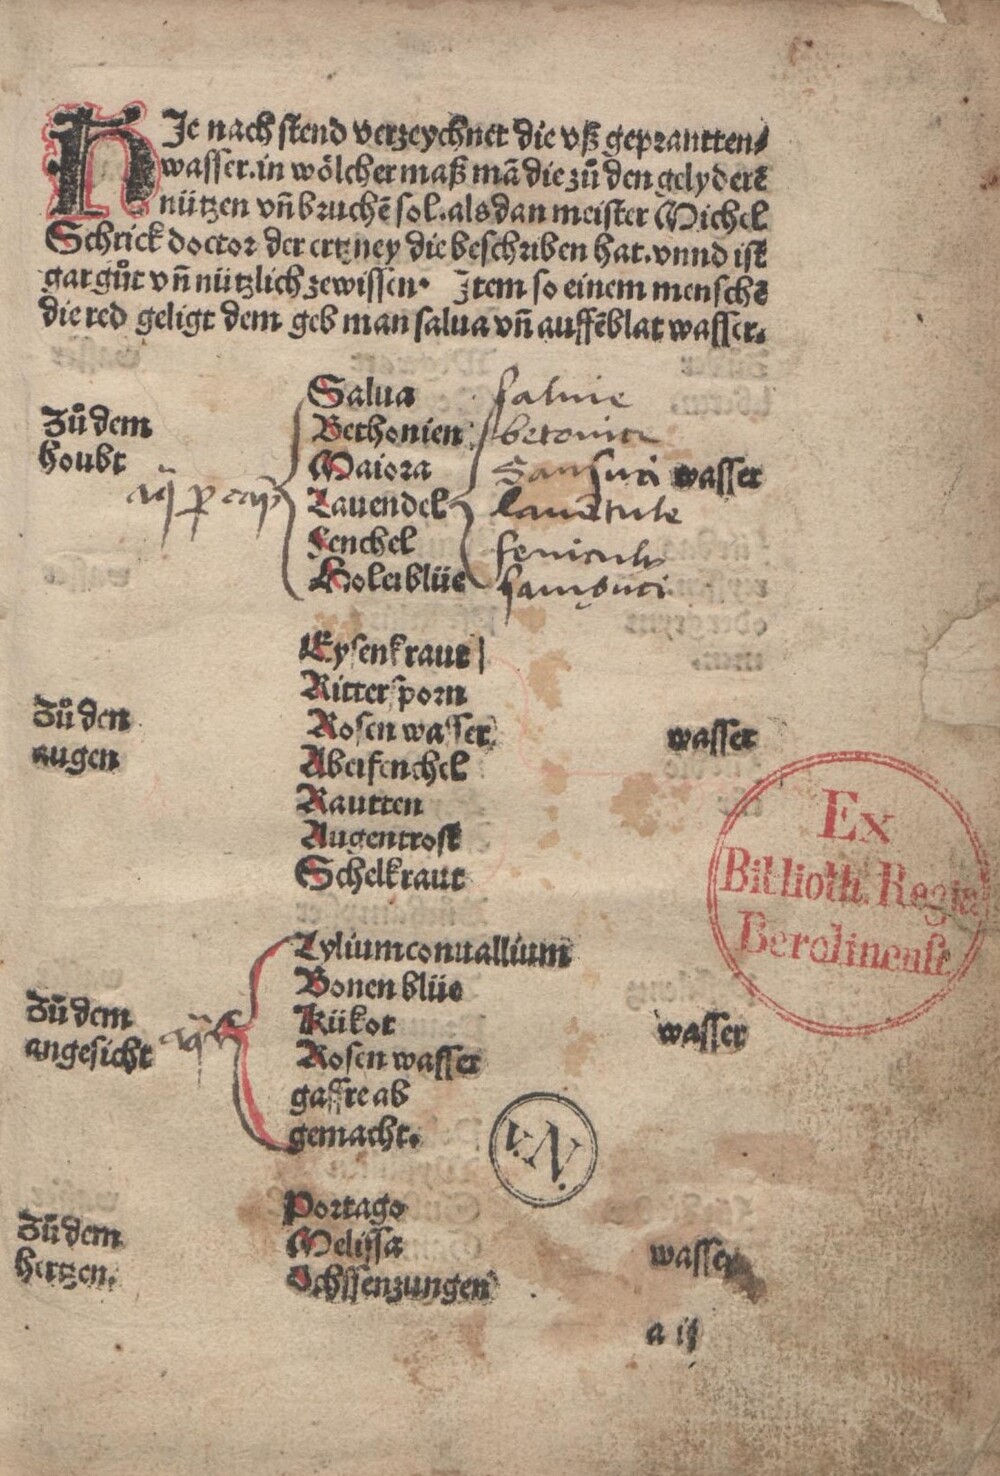 HJe nach stend verzeychnet die vß geprantten/
wasser.in wölcher maß mā die zů den gelyderē
nützen vn̄ bruchē sol.als dan meister Michel
Schrick doctor der ertzney die beschriben hat.vnnd ist
gar gůt vn̄ nützlich zewissen. Jtem so einem menschē
die red geligt dem geb man salua vn̄ auffēblat wasser.
Zů dem
houbt
Salua salvie
Bethonien betonice
Maiora Sansuci wasser
Lauendel lauētule
Fenchel feniculi
Holerblüe sambuci
Zů den
augen
Eysenkraut
Rittersporn
Rosen wasser wasser
Abeifenchel
Rautten
Augentrost
Schelkraut
Zů dem
angesicht
Lyliumconuallium
Bonen blüe
Kükot wasser
Rosen wasser
gaffre ab
gemacht.
Zů dem
hertzen.
Portago
Melissa wasser
Ochssenzungen
a ij
Ex
Biblioth. Regia
Berolinensi.
v.N.